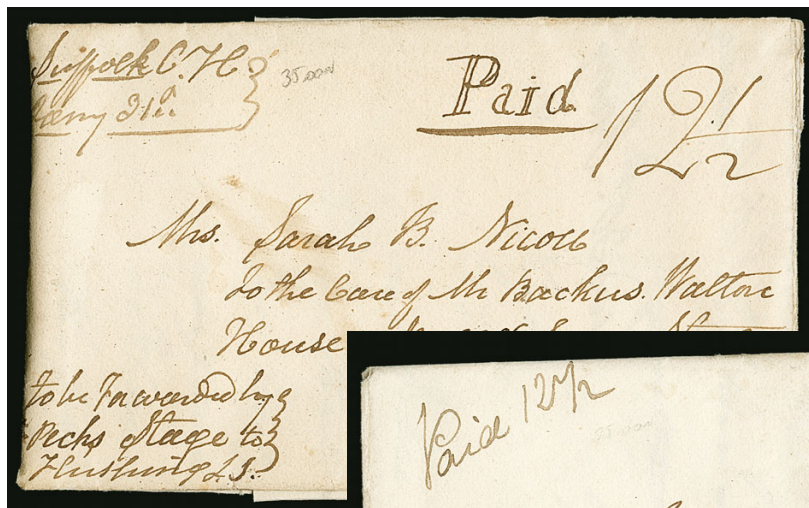 Suffolk C. H.
Jany 31st.
35.00
Paid 12 1/2
Mrs. Sarah B. Nicoll
To the Care of Mr Backus. Walton
House
to be Forwarded by
Pecks Stage to
Flushing L I.
Paid 12 1/2